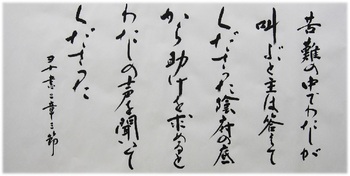 苦難の中でわたしが
叫ぶと主は答えて
くださった陰府の底
から助けを求めると
わたしの声を聞いて
くださった
ヨナ書二章三節